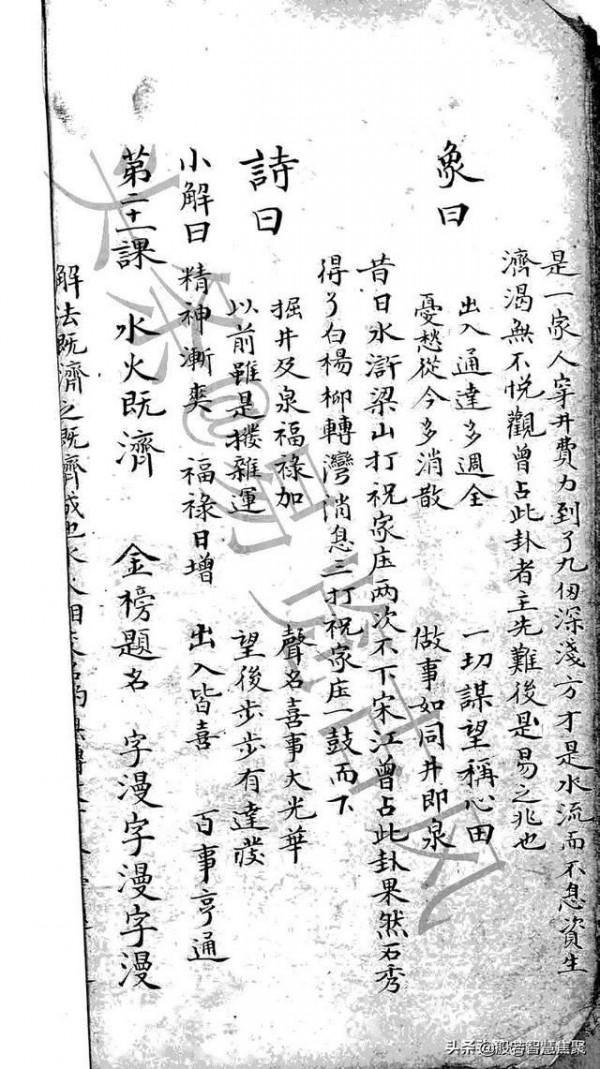 是一家人穿井費力到了九仞深淺方才是水流而不息資生
濟渴無不悅觀曾占此卦者主先難後是易之兆也
象曰
出入通達多週全 一切謀望稱心田
憂愁從今多消散 做事如同井即泉
昔日水滸梁山打祝家庄两次不下宋江曾占此卦果然石秀
得了白楊柳轉灣消息三打祝家庄一鼓而下
詩曰
掘井及泉福禄加 聲名喜事大光華
以前雖是擾雜運 望後步步有達發
小解曰 精神漸爽 福禄日增 出入皆喜 百事亨通
第二十一課 水火既濟 金榜題名 字漫字漫字漫
解法既濟之既齊成也水火相
头条@易
头条@般若智慧焦聚